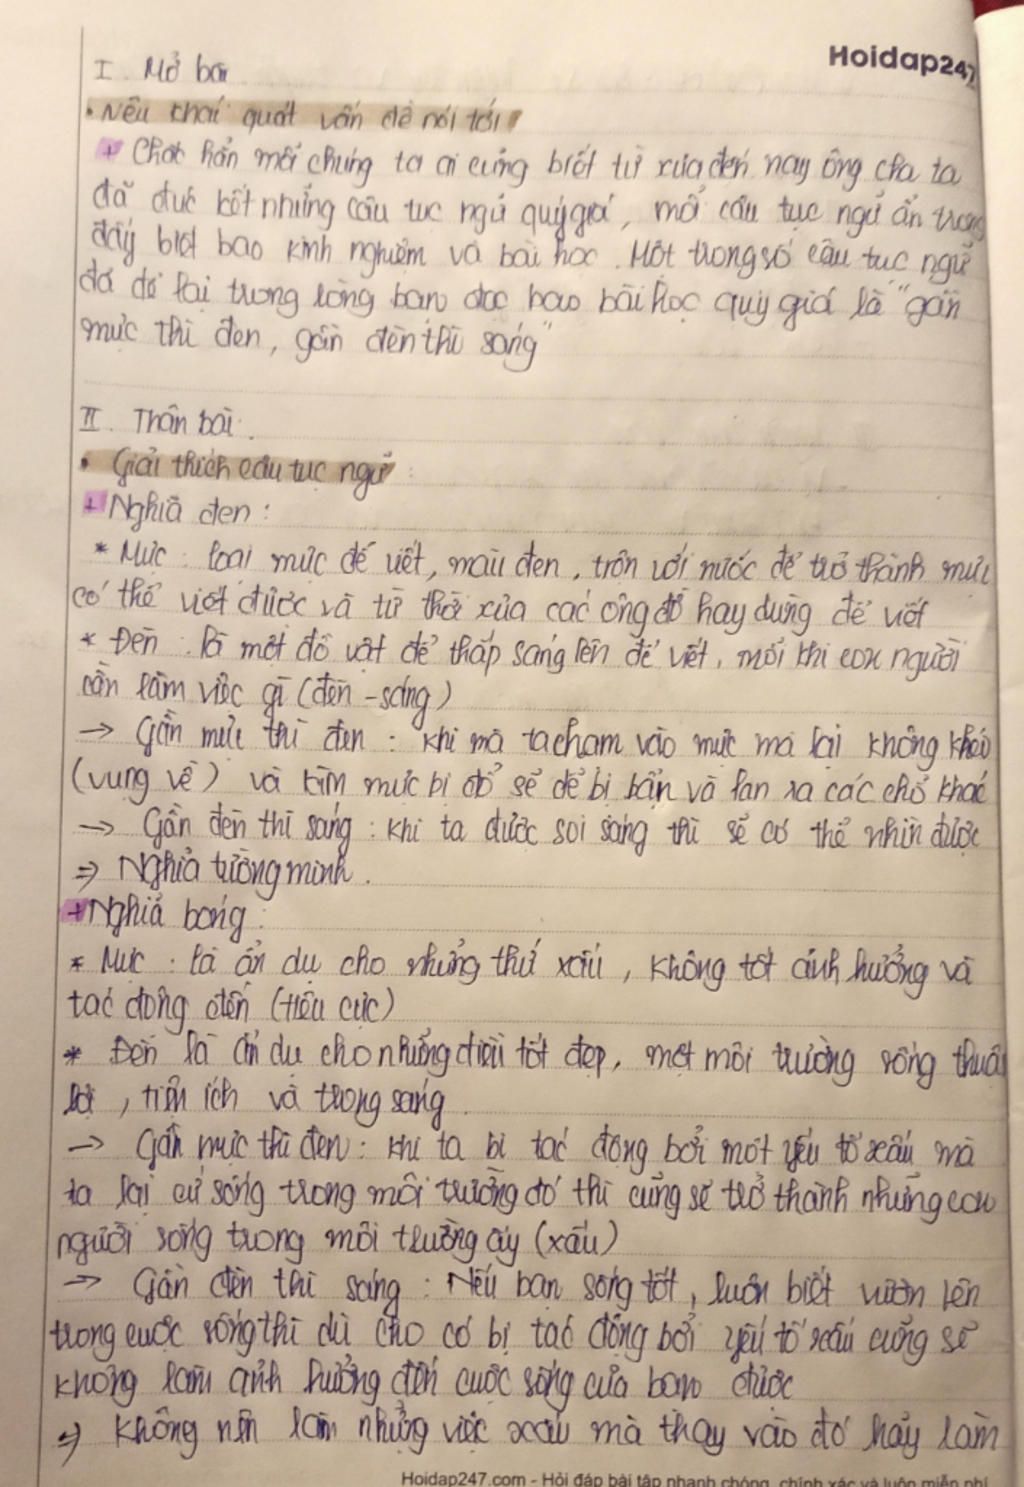 Hoidap247
I. Mở bài
• Nêu khái quát vấn đề nói tới
+ Chắc hẳn mỗi chúng ta ai cũng biết từ xưa đến nay ông cha ta
đã đúc kết những câu tục ngữ quý giá, mỗi câu tục ngữ ẩn trong
đấy biết bao kinh nghiệm và bài học. Một trong số câu tục ngữ
đó để lại trong lòng bạn đọc bao bài học quý giá là "gần
mực thì đen, gần đèn thì sáng"
II. Thân bài:
• Giải thích câu tục ngữ:
+ Nghĩa đen:
* Mực: loại mực để viết, màu đen, trộn với nước để trở thành mực
có thể viết được và từ thời xưa các ông đồ hay dùng để viết
* Đèn: là một đồ vật để thắp sáng lên để viết, mỗi khi con người
cần làm việc gì (đèn - sáng)
→ Gần mực thì đen: khi mà ta chạm vào mực mà lại không khéo
(vụng về) và làm mực bị đổ sẽ dễ bị bẩn và lan ra các chỗ khác
→ Gần đèn thì sáng: khi ta được soi sáng thì sẽ có thể nhìn được
⇒ Nghĩa tường minh.
+ Nghĩa bóng:
* Mực: là ẩn dụ cho những thứ xấu, không tốt ảnh hưởng và
tác động đến (tiêu cực)
* Đèn là ẩn dụ cho những điều tốt đẹp, một môi trường sống thuận
lợi, tiện ích và trong sáng.
→ Gần mực thì đen: khi ta bị tác động bởi một yếu tố xấu mà
ta lại cứ sống trong môi trường đó thì cũng sẽ trở thành những con
người sống trong môi trường ấy (xấu)
→ Gần đèn thì sáng: Nếu bạn sống tốt, luôn biết vươn lên
trong cuộc sống thì dù cho có bị tác động bởi yếu tố xấu cũng sẽ
không làm ảnh hưởng đến cuộc sống của bạn được
⇒ Không nên làm những việc xấu mà thay vào đó hãy làm
Hoidap247.com - Hỏi đáp bài tập nhanh chóng, chính xác và luôn miễn phí